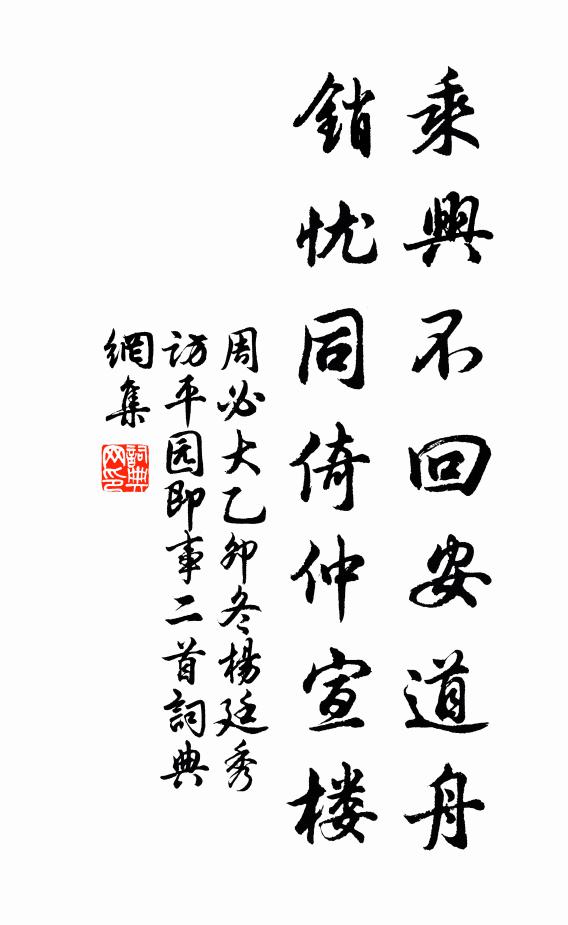 乘興不回安道舟
銷忧同倚仲宣楼
周必大乙卯冬楊廷秀
访平园即事二首詞典
網集
詞典
网印